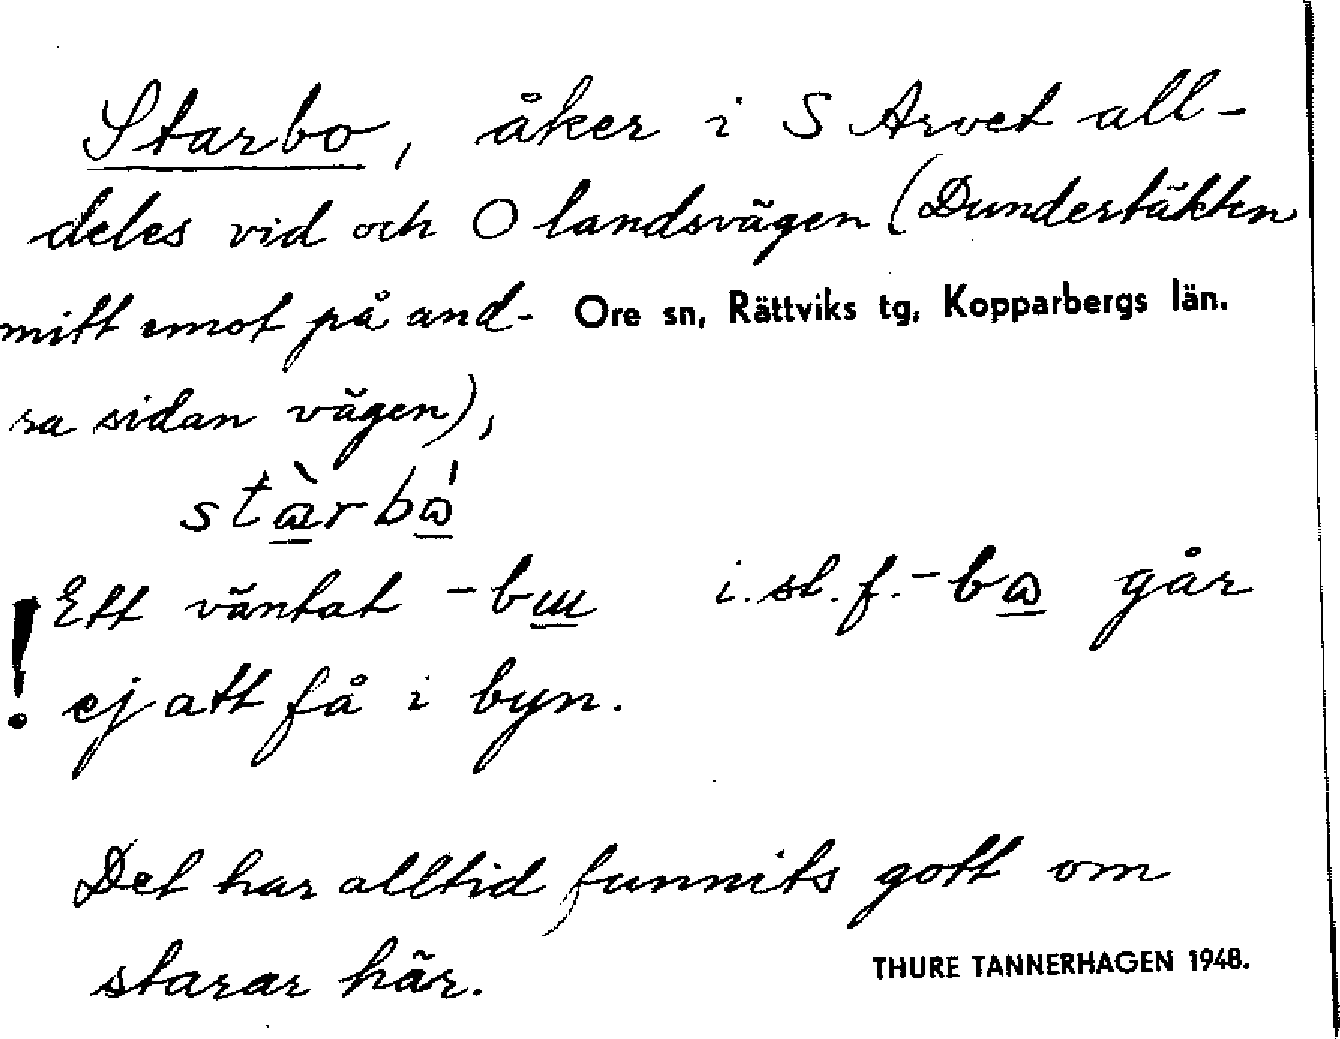 Starbo, åker i S Arvet all-
deles vid och O landsvägen (Dundertäkten
mitt emot på and-
Ore sn, Rättviks tg, Kopparbergs län.
ra sidan vägen),
stàrbɷ́
! Ett väntat -bɯ i. st. f. -bɷ går
ej att få i byn.
Det har alltid funnits gott om
starar här.
THURE TANNERHAGEN 1948.